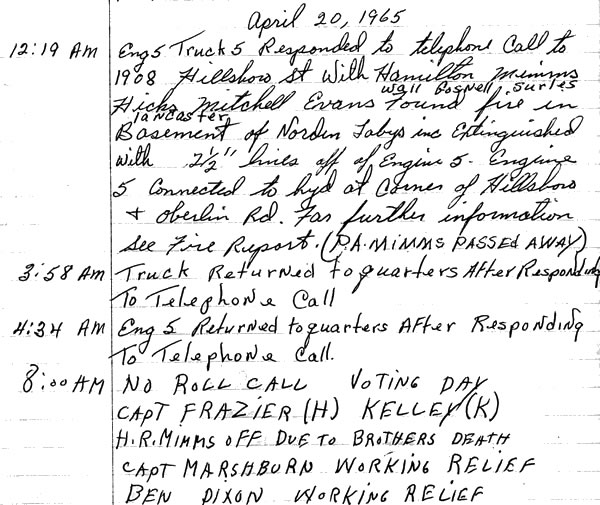 April 20, 1965
12:19 AM Eng 5 Truck 5 Responded to telephone Call to
1908 Hillsboro St With Hamilton Mimms
Wall Gosnell Surles
Hicks Mitchell Evans Found fire in
Lancaster
Basement of Norden Labys inc Extinguished
with 2½" lines off of Engine 5. Engine
5 Connected to hyd at Corner of Hillsboro
+ Oberlin Rd. For further information
See Fire Report. (P.A. MIMMS PASSED AWAY)
3:58 AM Truck Returned to quarters After Responding
To Telephone Call
4:34 AM Eng 5 Returned to quarters After Responding
To Telephone Call.
8:00 AM NO ROLL CALL VOTING DAY
CAPT FRAZIER (H) KELLEY (K)
H.R. MIMMS OFF DUE TO BROTHERS DEATH
CAPT MARSHBURN WORKING RELIEF
BEN DIXON WORKING RELIEF